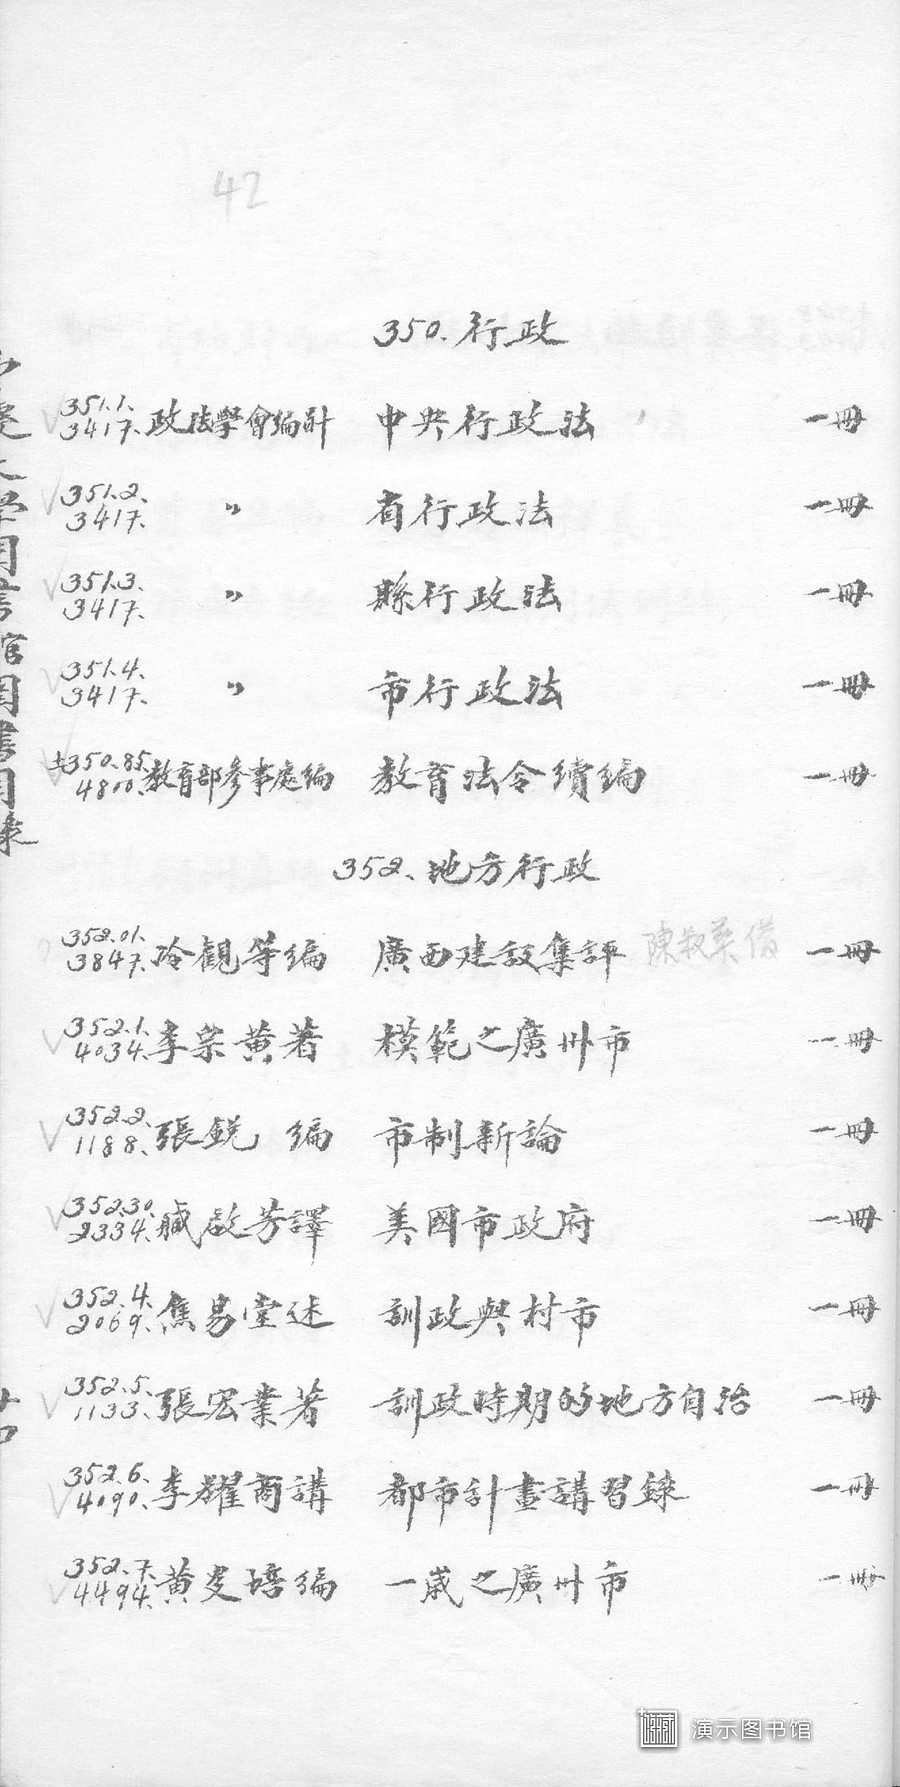 42
350.行政
351.1.
3417. 政法學會編計 中央行政法 一冊
351.2.
3417. 〃 省行政法 一冊
351.3.
3417. 〃 縣行政法 一冊
351.4.
3417. 〃 市行政法 一冊
±350.85.
4800. 教育部參事處編 教育法令續編 一冊
352.地方行政
352.01.
3847. 冷觀等編 廣西建設集評 陳 借 一冊
352.1.
4034. 李宗黃著 模範之廣州市 一冊
352.2.
1188. 張銳 編 市制新論 一冊
352.30.
2334. 臧啟芳譯 美國市政府 一冊
352.4.
2069. 焦易堂述 訓政與村市 一冊
352.5.
1133. 張宏業著 訓政時期的地方自治 一冊
352.6.
4090. 李耀商講 都市計畫講習錄 一冊
352.7.
4494. 黃炎培編 一歲之廣州市 一冊
大學圖書館圖書目錄
演示图书馆